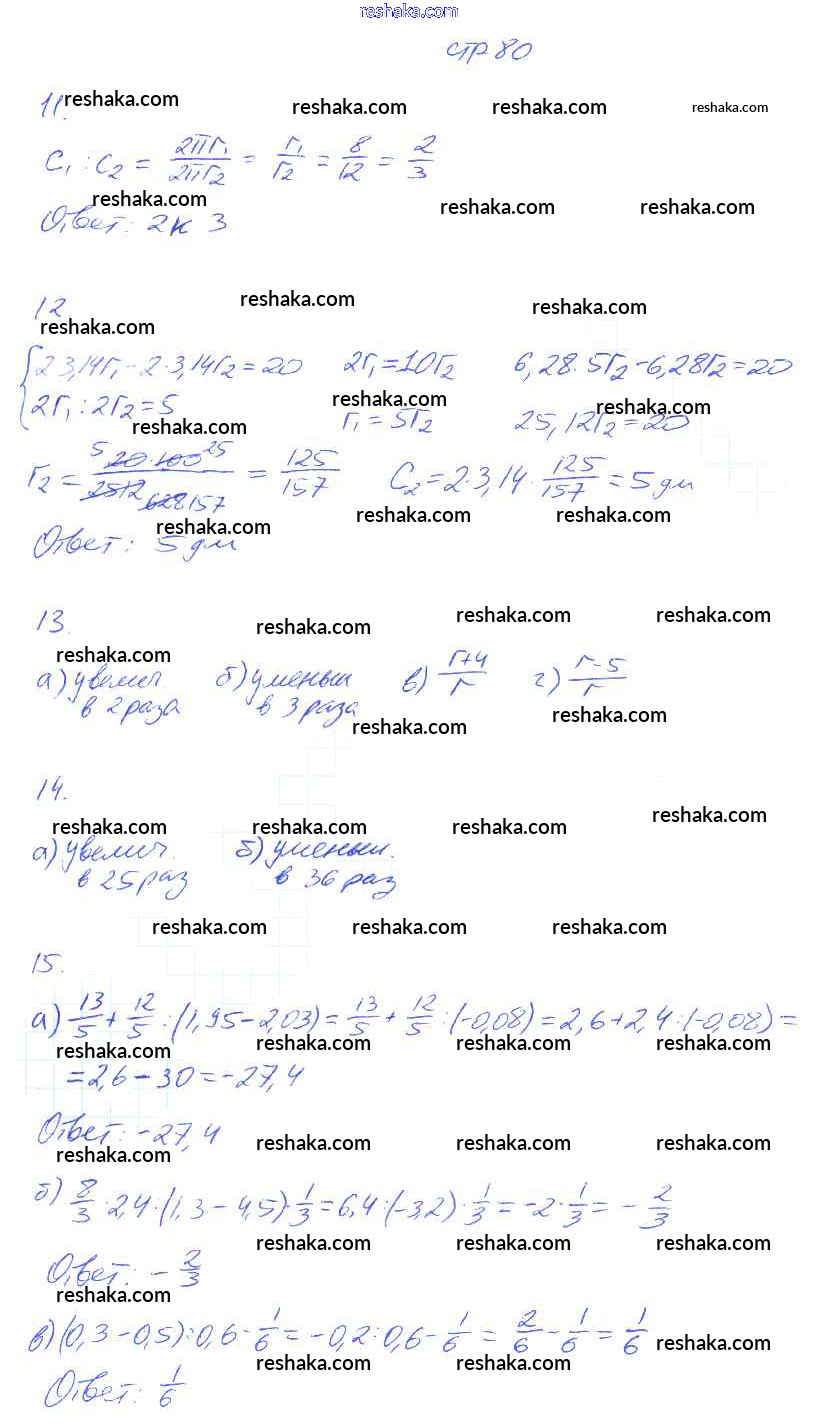 reshaka.com
стр 80
11.
reshaka.com reshaka.com reshaka.com reshaka.com
C₁ : C₂ = 2πr₁/2πr₂ = r₁/r₂ = 8/12 = 2/3
reshaka.com reshaka.com reshaka.com
Ответ: 2 к 3
12
reshaka.com reshaka.com reshaka.com
{2·3,14r₁ - 2·3,14r₂ = 20 2r₁ = 10r₂ 6,28·5r₂ - 6,28r₂ = 20
2r₁ : 2r₂ = 5 r₁ = 5r₂ 25,12r₂ = 20
reshaka.com reshaka.com reshaka.com
r₂ = 5 20·100 25/2512 628 157 = 125/157 C₂ = 2·3,14·125/157 = 5 дм
reshaka.com reshaka.com reshaka.com
Ответ: 5 дм
13.
reshaka.com reshaka.com reshaka.com reshaka.com
а) увелич. б) уменьш в) r+4/r г) r-5/r
в 2 раза в 3 раза
reshaka.com reshaka.com
14.
reshaka.com reshaka.com reshaka.com reshaka.com
а) увелич. б) уменьш.
в 25 раз в 36 раз
reshaka.com reshaka.com reshaka.com
15.
а) 13/5 + 12/5 : (1,95 - 2,03) = 13/5 + 12/5 : (-0,08) = 2,6 + 2,4 : (-0,08) =
reshaka.com reshaka.com reshaka.com reshaka.com
= 2,6 - 30 = -27,4
Ответ: -27,4
reshaka.com reshaka.com reshaka.com reshaka.com
б) 8/3 · 2,4 : (1,3 - 4,5) · 1/3 = 6,4 : (-3,2) · 1/3 = -2 · 1/3 = - 2/3
reshaka.com reshaka.com reshaka.com
Ответ: - 2/3
reshaka.com
в) (0,3 - 0,5) : 0,6 - 1/6 = -0,2 : 0,6 - 1/6 = 2/6 - 1/6 = 1/6
reshaka.com reshaka.com reshaka.com
Ответ: 1/6